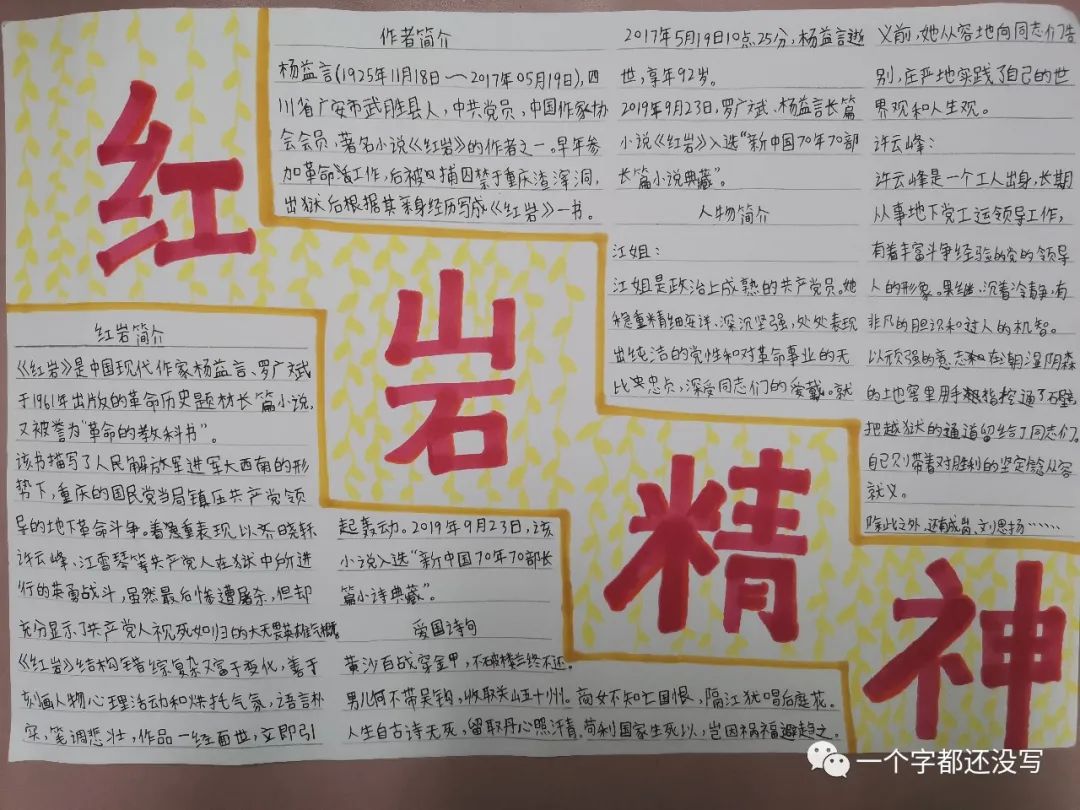 红岩精神
作者简介
杨益言(1925年11月18日—2017年05月19日),四
川省广安市武胜县人,中共党员,中国作家协
会会员,著名小说《红岩》的作者之一。早年参
加革命活工作,后被捕囚禁于重庆渣滓洞,
出狱后根据其亲身经历写成《红岩》一书。
2017年5月19日10点25分,杨益言逝
世,享年92岁。
2019年9月23日,罗广斌、杨益言长篇
小说《红岩》入选“新中国70年70部
长篇小说典藏”。
人物简介
江姐:
江姐是政治上成熟的共产党员。她
稳重精细安详、深沉坚强,处处表现
出纯洁的党性和对革命事业的无
比忠贞,深受同志们的爱戴。就
义前,她从容地向同志们告
别,庄严地实践了自己的世
界观和人生观。
许云峰:
许云峰是一个工人出身,长期
从事地下党工运领导工作,
有着丰富斗争经验的党的领导
人的形象。果继、沉着冷静,有
非凡的胆识和过人的机智。
以顽强的意志和在潮湿阴森
的土地窖里用手指挖通了石壁,
把越狱的通道留给了同志们,
自己则带着对胜利的坚定信念从容
就义。
除此之外,还有成岗、刘思扬……
红岩简介
《红岩》是中国现代作家杨益言、罗广斌
于1961年出版的革命历史题材长篇小说,
又被誉为“革命的教科书”。
该书描写了人民解放军进军大西南的形
势下,重庆的国民党当局镇压共产党领
导的地下革命斗争。着重表现以齐晓轩
许云峰、江雪琴等共产党人在狱中所进
行的英勇战斗,虽然最后惨遭屠杀,但却
充分显示了共产党人视死如归的大无畏英雄气概
《红岩》结构错综复杂又富于变化,善于
刻画人物心理活动和烘托气氛,语言朴
实,笔调悲壮,作品一经面世,立即引
起轰动。2019年9月23日,该
小说入选“新中国70年70部长
篇小诗典藏”。
爱国诗句
黄沙百战穿金甲,不破楼兰终不还。
男儿何不带吴钩,收取关山五十州。商女不知亡国恨,隔江犹唱后庭花。
人生自古诗无死,留取丹心照汗青。苟利国家生死以,岂因祸福避趋之。
一个字都还没写